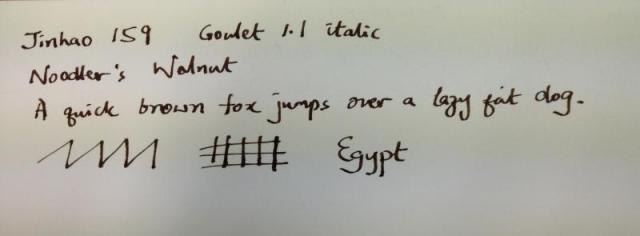 Jinhao 159 Goulet 1.1 italic
Noodler's Walnut
A quick brown fox jumps over a lazy fat dog.
Egypt